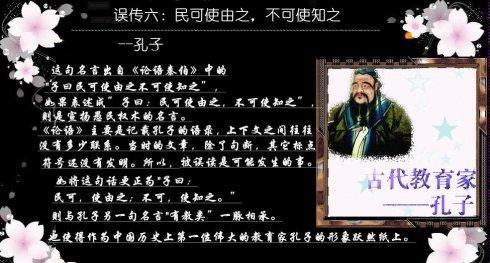 误传六：民可使由之，不可使知之
--孔子
这句名言出自《论语泰伯》中的
“子曰民可使由之不可使知之”，
如果表述成”子曰：民可使由之，不可使知之”，
则是宣扬愚民权术的名言。
《论语》主要是记载孔子的语录，上下文之间往往
没有多少联系。当时的文章，除了句断，其它标点
符号还没有发明。所以，被误读是可能发生的事。
如将这句话更正为“子曰：
民可，使由之；不可，使知之。”
则与孔子另一句名言“有教类”一脉相承。
也使得作为中国历史上第一位伟大的教育家孔子的形象跃然纸上。
古代教育家
——孔子